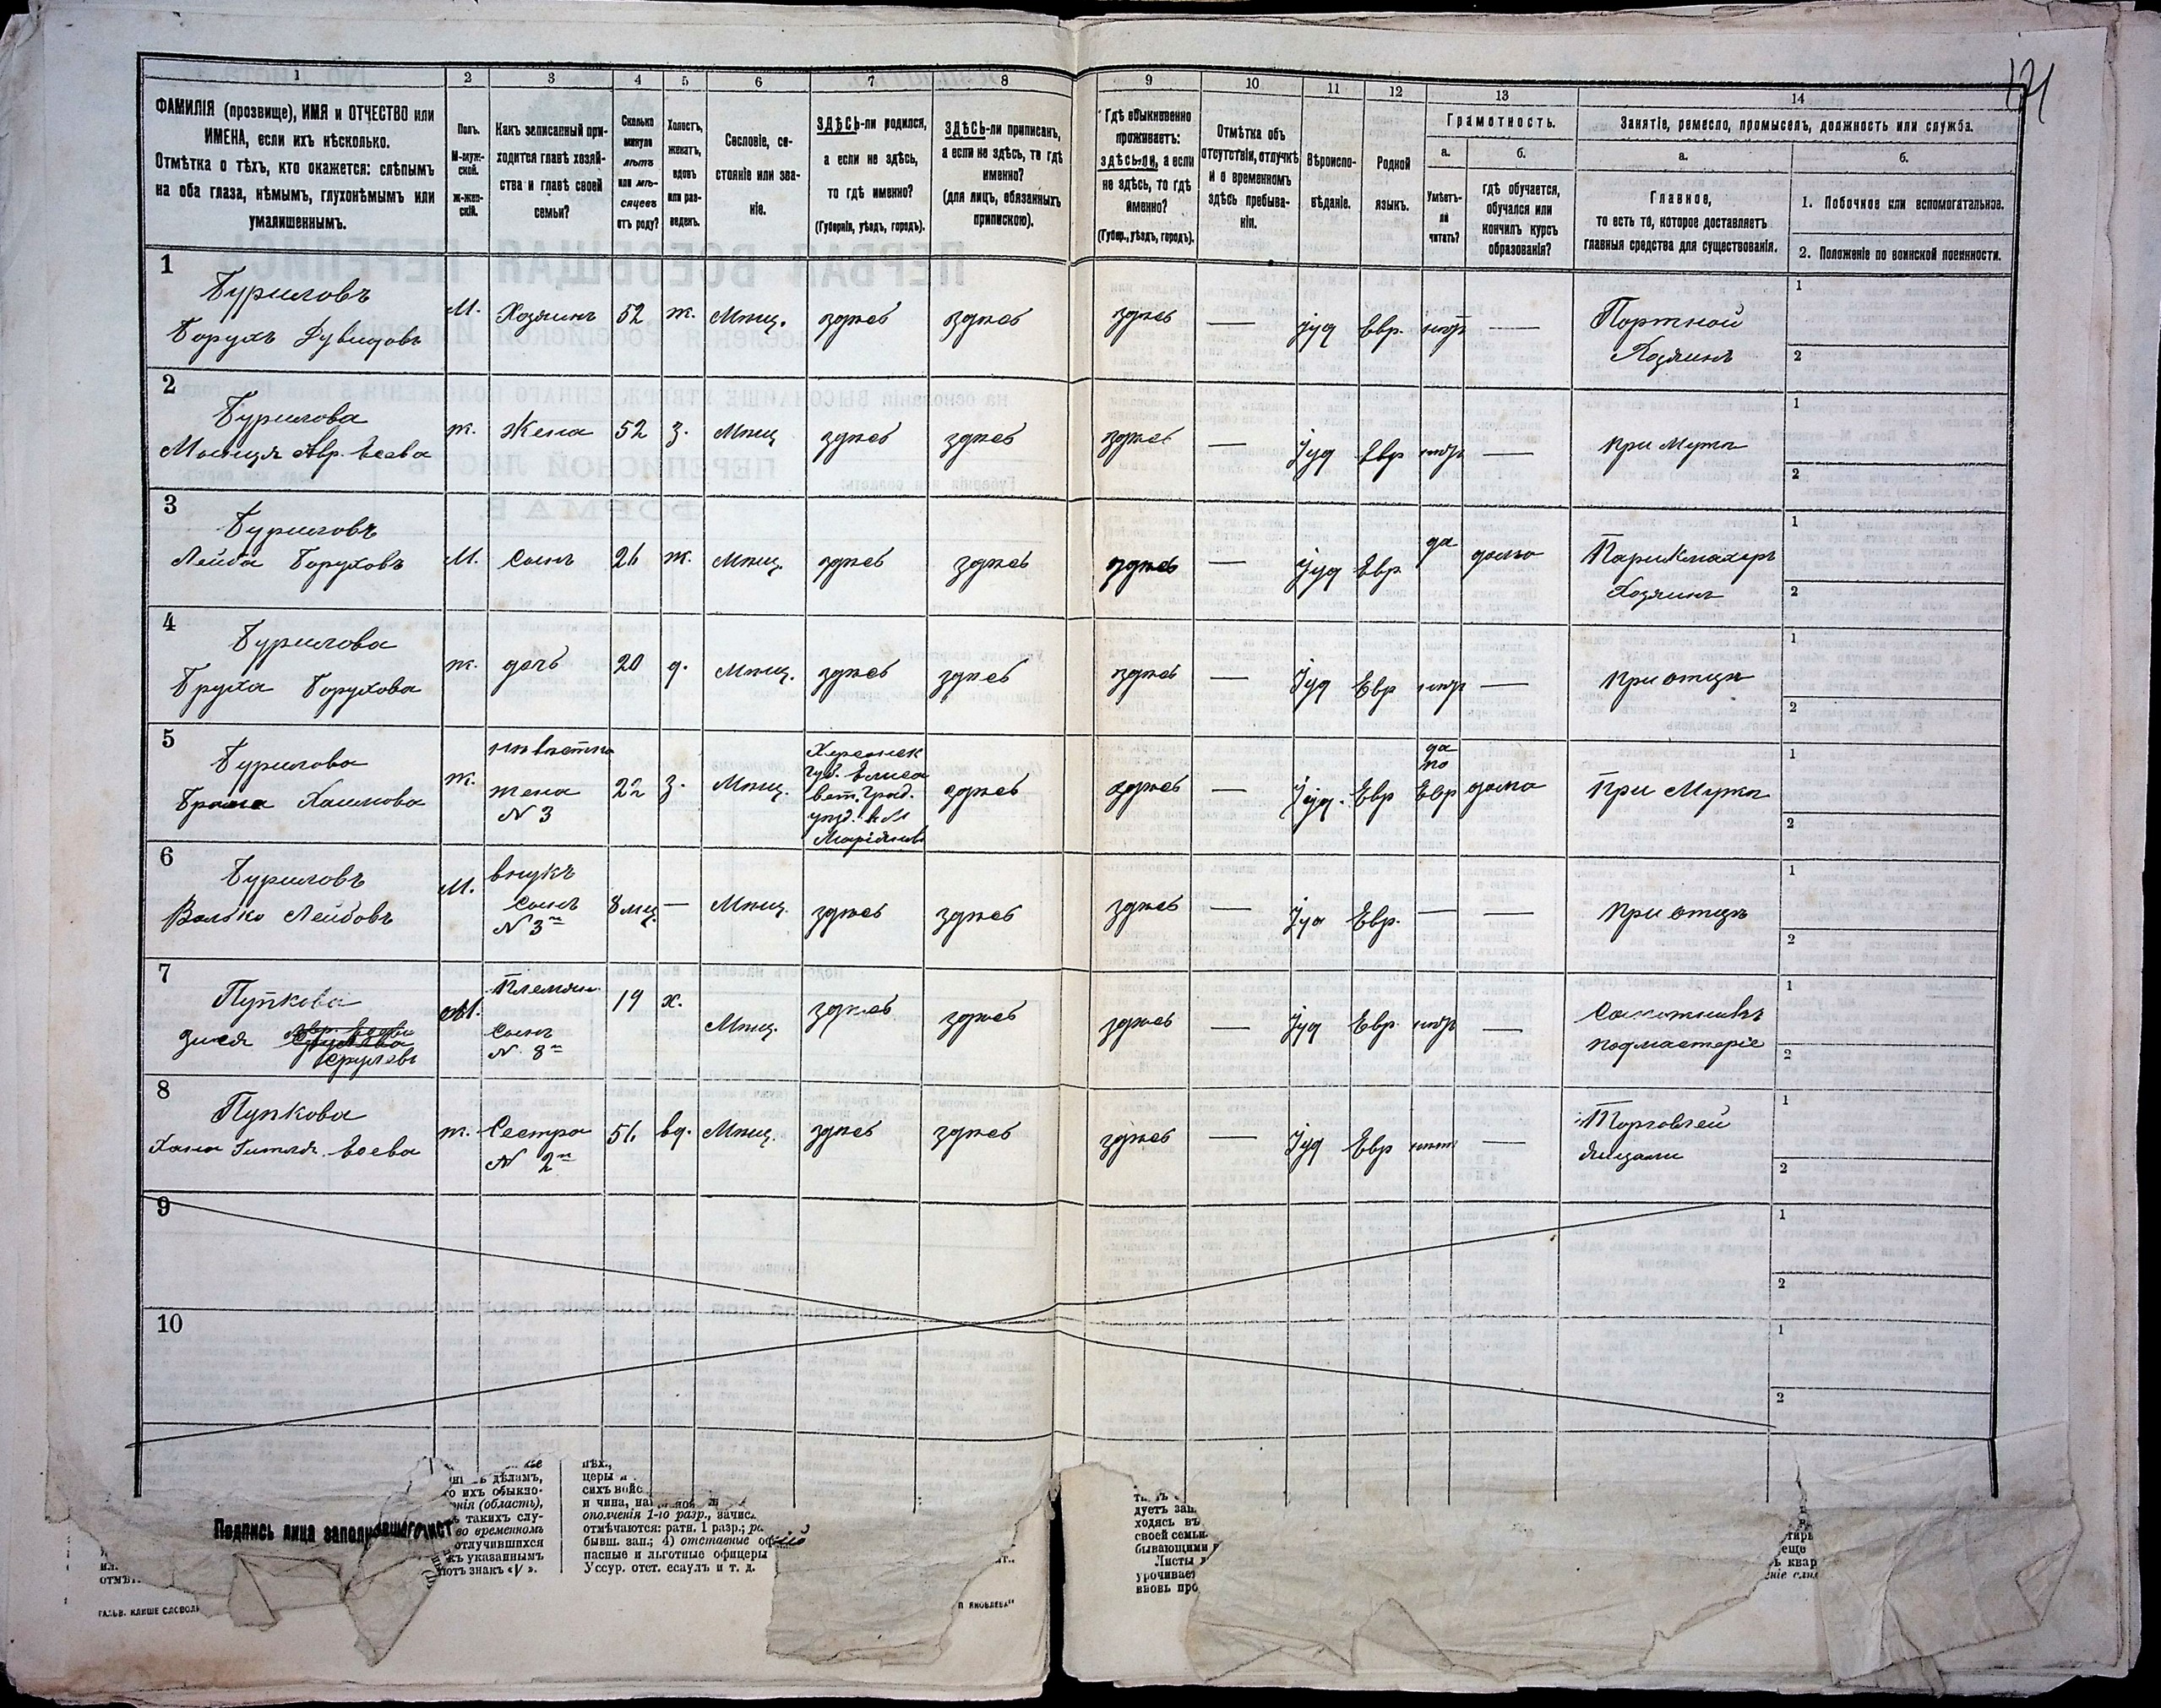 1 2 3 4 5 6 7 8 9 10 11 12 13 14
ФАМИЛІЯ (прозвище), ИМЯ и ОТЧЕСТВО или
ИМЕНА, если ихъ нѣсколько.
Отмѣтка о тѣхъ, кто окажется: слѣпымъ
на оба глаза, нѣмымъ, глухонѣмымъ или
умалишеннымъ.
Полъ.
М-муж-
ской.
Ж-жен-
скій.
Какъ записанный при-
ходится главѣ хозяй-
ства и главѣ своей
семьи?
Сколько
минуло
лѣтъ
или мѣ-
сяцевъ
отъ роду?
Холостъ,
женатъ,
вдовъ
или раз-
веденъ.
Сословіе, со-
стояніе или зва-
ніе.
ЗДѢСЬ-ли родился,
а если не здѣсь,
то гдѣ именно?
(Губернія, уѣздъ, городъ).
ЗДѢСЬ-ли приписанъ,
а если не здѣсь, то гдѣ
именно?
(для лицъ, обязанныхъ
припискою).
Гдѣ обыкновенно
проживаетъ:
здѣсь-ли, а если
не здѣсь, то гдѣ
именно?
(Губер., уѣздъ, городъ).
Отмѣтка объ
отсутствіи, отлучкѣ
и о временномъ
здѣсь пребыва-
ніи.
Вѣроиспо-
вѣданіе.
Родной
языкъ.
Грамотность.
а.
Умѣетъ-
ли
читать?
б.
гдѣ обучается,
обучался или
кончилъ курсъ
образованія?
Занятіе, ремесло, промыселъ, должность или служба.
а.
Главное,
то есть то, которое доставляетъ
главныя средства для существованія.
б.
1. Побочное или вспомогательное.
2. Положеніе по воинской повинности.
1
Буриловъ
Борухъ Дувидовъ
М. Хозяинъ 52 ж. Мѣщ. здѣсь здѣсь здѣсь — Іуд Евр. нѣтъ —
Портной
Хозяинъ
1
2
2
Бурилова
ж. Жена 52 з. Мѣщ здѣсь здѣсь здѣсь — Іуд Евр нѣтъ — при Мужѣ
1
2
3
Буриловъ
Лейба Боруховъ
М. Сынъ 26 ж. Мѣщ. здѣсь здѣсь здѣсь — Іуд Евр да дома
Парикмахеръ
Хозяинъ
1
2
4
Бурилова
Бруха Борухова
ж. дочь 20 д. Мѣщ. здѣсь здѣсь здѣсь — Іуд Евр нѣтъ — при отцѣ
1
2
5
Бурилова
Хаимова
ж.
невѣстка
жена
№ 3
22 з. Мѣщ.
Херсонск
губ. Елиса
вет. град.
уѣзд. в М
здѣсь здѣсь — Іуд. Евр
да
по
Евр
дома При Мужѣ
1
2
6
Буриловъ
Волько Лейбовъ
М.
внукъ
Сынъ
№ 3
8 мц — Мѣщ. здѣсь здѣсь здѣсь — Іуд Евр. — — при отцѣ
1
2
7
Пупкова
Зися
Срулевъ
М.
Племян.
Сынъ
№ 8
19 х. Мѣщ. здѣсь здѣсь здѣсь — Іуд Евр нѣтъ —
Сапожникъ
подмастеріе
1
2
8
Пупкова
Хана Гитля
ж.
Сестра
№ 2
51 вд. Мѣщ. здѣсь здѣсь здѣсь — Іуд Евр нѣтъ —
Торговлей
Яйцами
1
2
9
1
2
10
1
2
дѣламъ,
ихъ обыкно-
(область),
такихъ слу-
во временномъ
отлучившихся
указаннымъ
знакъ «V».
и чина,
ополченія 1-го разр.,
отмѣчаются: ратн. 1 разр.;
бывш. зап.; 4) отставные
пасные и льготные офицеры
Уссур. отст. есаулъ и т. д.
Подпись лица
дуетъ
ходясь въ
своей семьи.
бывающими
Листы
вновь
еще
ГАЛЬВ. КЛИШЕ
ЯКОВЛЕВА"